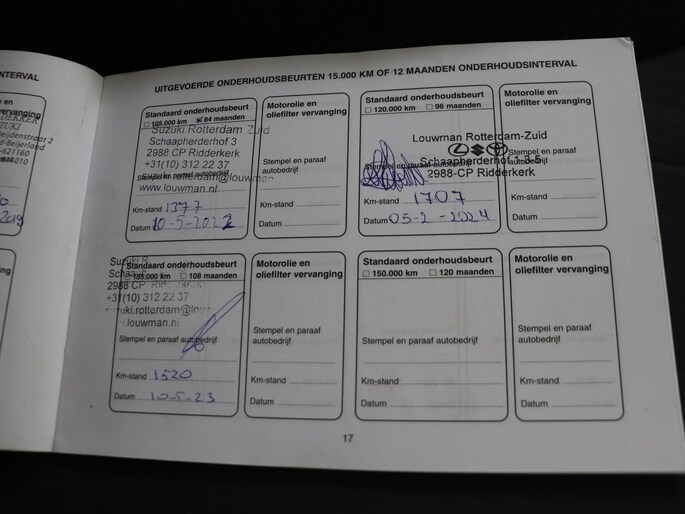 NTERVAL
en
vervanging
UZUKI
eijdenstraat 2
d-Beijerland
-621760
64010
2019
ng
UITGEVOERDE ONDERHOUDSBEURTEN 15.000 KM OF 12 MAANDEN ONDERHOUDSINTERVAL
Standaard onderhoudsbeurt
105.000 km 84 maanden
Suzuki Rotterdam Zuid
Schaapherderhof 3
2988 CP Ridderkerk
+31(10) 312 22 37
Stempel en paraaf autobedrijf
suzuki.rotterdam@louwman
www.louwman.nl
Km-stand 1377
Datum 10-5-2022
Motorolie en
oliefilter vervanging
Stempel en paraaf
autobedrijf
Km-stand
Datum
Standaard onderhoudsbeurt
120.000 km 96 maanden
Louwman Rotterdam-Zuid
Stempel en paraaf autobedrijf
Schaapherderhof 1-3-5
2988-CP Ridderkerk
Km-stand 1707
Datum 05-2-2024
Motorolie en
oliefilter vervanging
Stempel en paraaf
autobedrijf
Km-stand
Datum
Standaard onderhoudsbeurt
135.000 km 108 maanden
Suzuki R
Schaa
2988 CP
+31(10) 312 22 37
suzuki.rotterdam@lou
louwman.nl
Stempel en paraaf autobedrijf
Km-stand 1520
Datum 10-5-23
Motorolie en
oliefilter vervanging
Stempel en paraaf
autobedrijf
Km-stand
Datum
Standaard onderhoudsbeurt
150.000 km 120 maanden
Stempel en paraaf autobedrijf
Km-stand
Datum
Motorolie en
oliefilter vervanging
Stempel en paraaf
autobedrijf
Km-stand
Datum
17